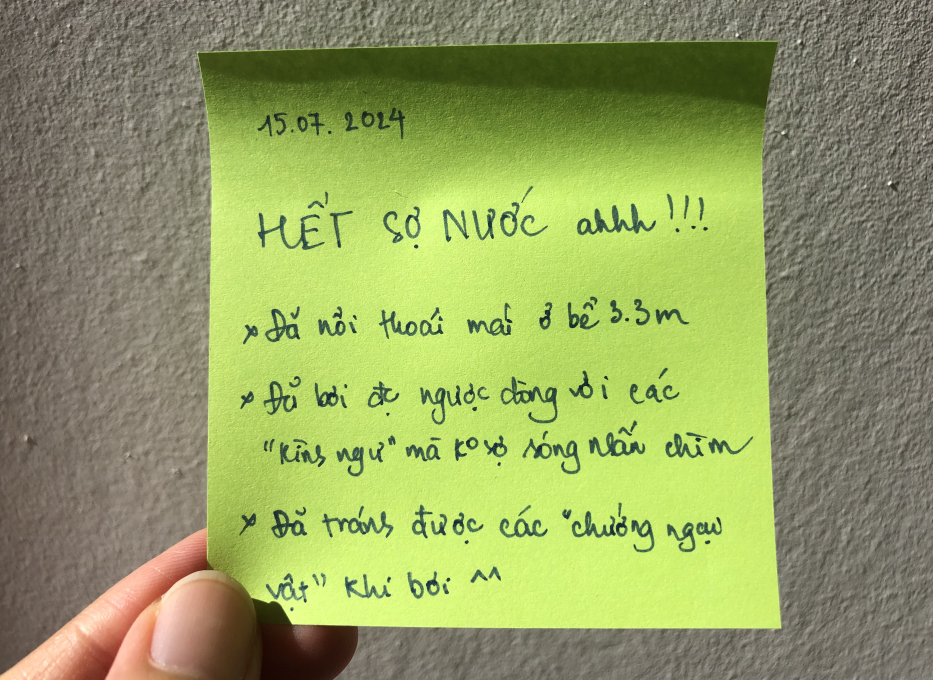 15.07.2024
HẾT SỢ NƯỚC ahhh!!!
× Đã nổi thoải mái ở bể 3.3m
× Đã bơi đc ngược dòng với các
"Kình ngư" mà ko sợ sóng nhấn chìm
× Đã tránh được các "chướng ngại
vật" khi bơi ^^